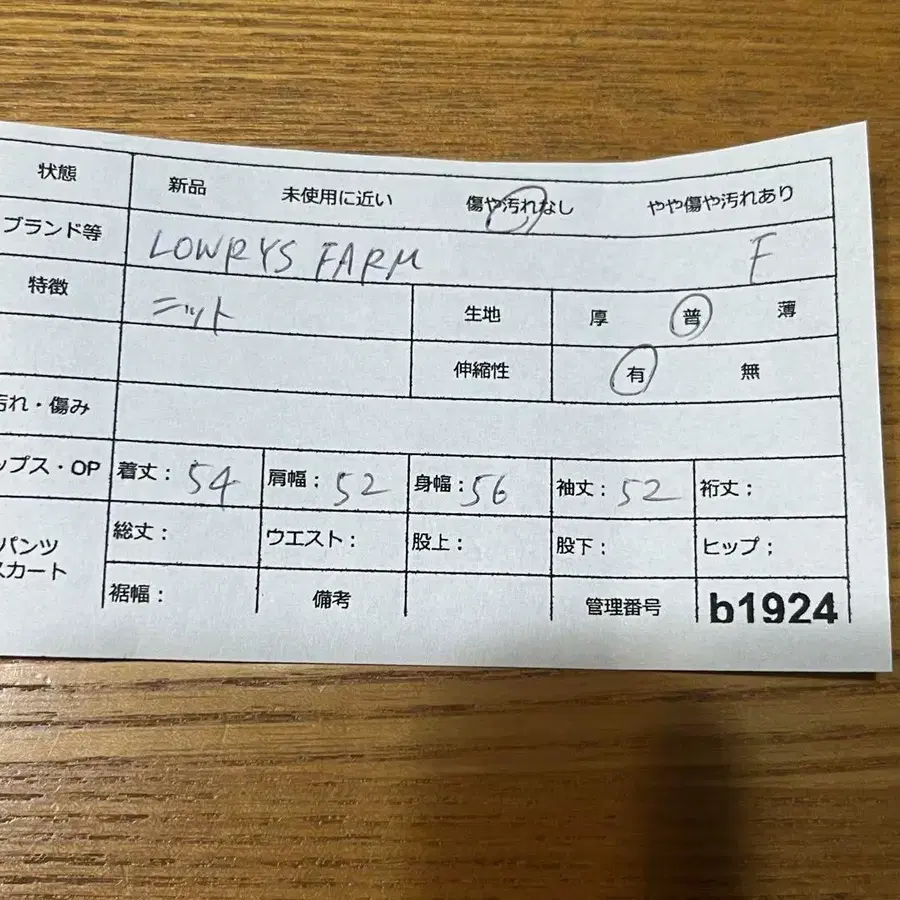 状態 新品 未使用に近い 傷や汚れなし やや傷や汚れあり
ブランド等 LOWRYS FARM F
特徴 ニット 生地 厚 普 薄
伸縮性 有 無
汚れ・傷み
ップス・OP 着丈: 54 肩幅: 52 身幅: 56 袖丈: 52 裄丈;
パンツ 総丈: ウエスト: 股上: 股下: ヒップ;
スカート
裾幅: 備考 管理番号 b1924